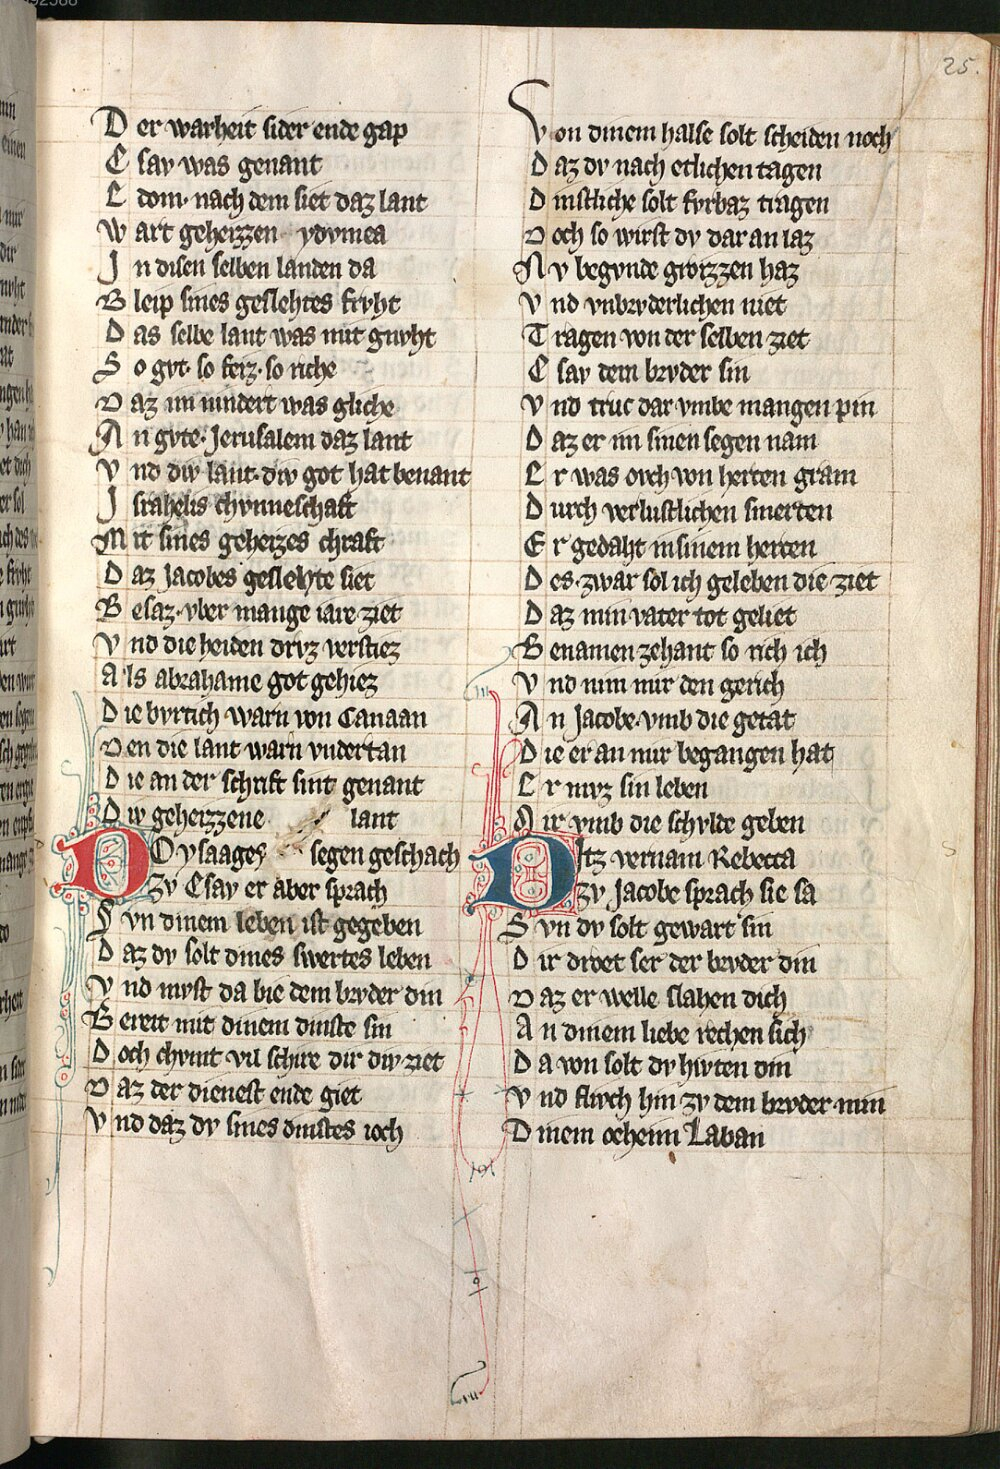 25.
D er warheit sider ende gap
E say was genant
E dom· nach dem siet daz lant
W art geheizzen ydvmea
J n disen selben landen da
B leip sines geslehtes frvht
D as selbe lant was mit gnvht
S o gvt· so feiz· so riche
D az im nindert was gliche
A n gvte· Jerusalem daz lant
V nd div lant· div got hat benant
J srahelis chvnneschaft
M it sines geheizes chraft
D az Jacobes geslehte siet
B esaz· vber mange iare ziet
V nd die heiden drvz verstiez
A ls abrahame got gehiez
D ie bvrtich warn von Canaan
D en die lant warn vndertan
D ie an der schrift sint genant
D iv geheizzene lant
DO ysaages segen geschach
Zv Esav er aber sprach
S vn dinem leben ist gegeben
D az dv solt dines swertes leben
V nd mvst da bie dem brvder din
B ereit mit dinem dinste sin
D och chvmt vil schire dir div ziet
D az der dienest ende giet
V nd daz dv sines dinstes ioch
V on dinem halse solt scheiden noch
D az dv nach etlichen tagen
D instliche solt fvrbaz tragen
D och so wirst dv dar an laz
N v begvnde grozzen haz
V nd vnbrvderlichen niet
T ragen von der selben ziet
E sav dem brvder sin
V nd truc dar vmbe mangen pin
D az er im sinen segen nam
E r was ovch von herten gram
D urch verlustlichen smerten
E r gedaht in sinem herten
D es· zwar sol ich geleben die ziet
D az min vater tot geliet
B enamen zehant so rich ich
V nd nim mir den gerich
A n Jacobe· vmb die getat
D ie er an mir begangen hat
E r mvz sin leben
M ir vmb die schvlde geben
DItz vernam Rebecca
Zv Jacobe sprach sie sa
S vn dv solt gewart sin
D ir droet ser der brvder din
D az er welle slahen dich
A n dinem liebe rechen sich
D a von solt dv hvten din
V nd flivch hin zv dem brvder min
D inem oeheim Laban